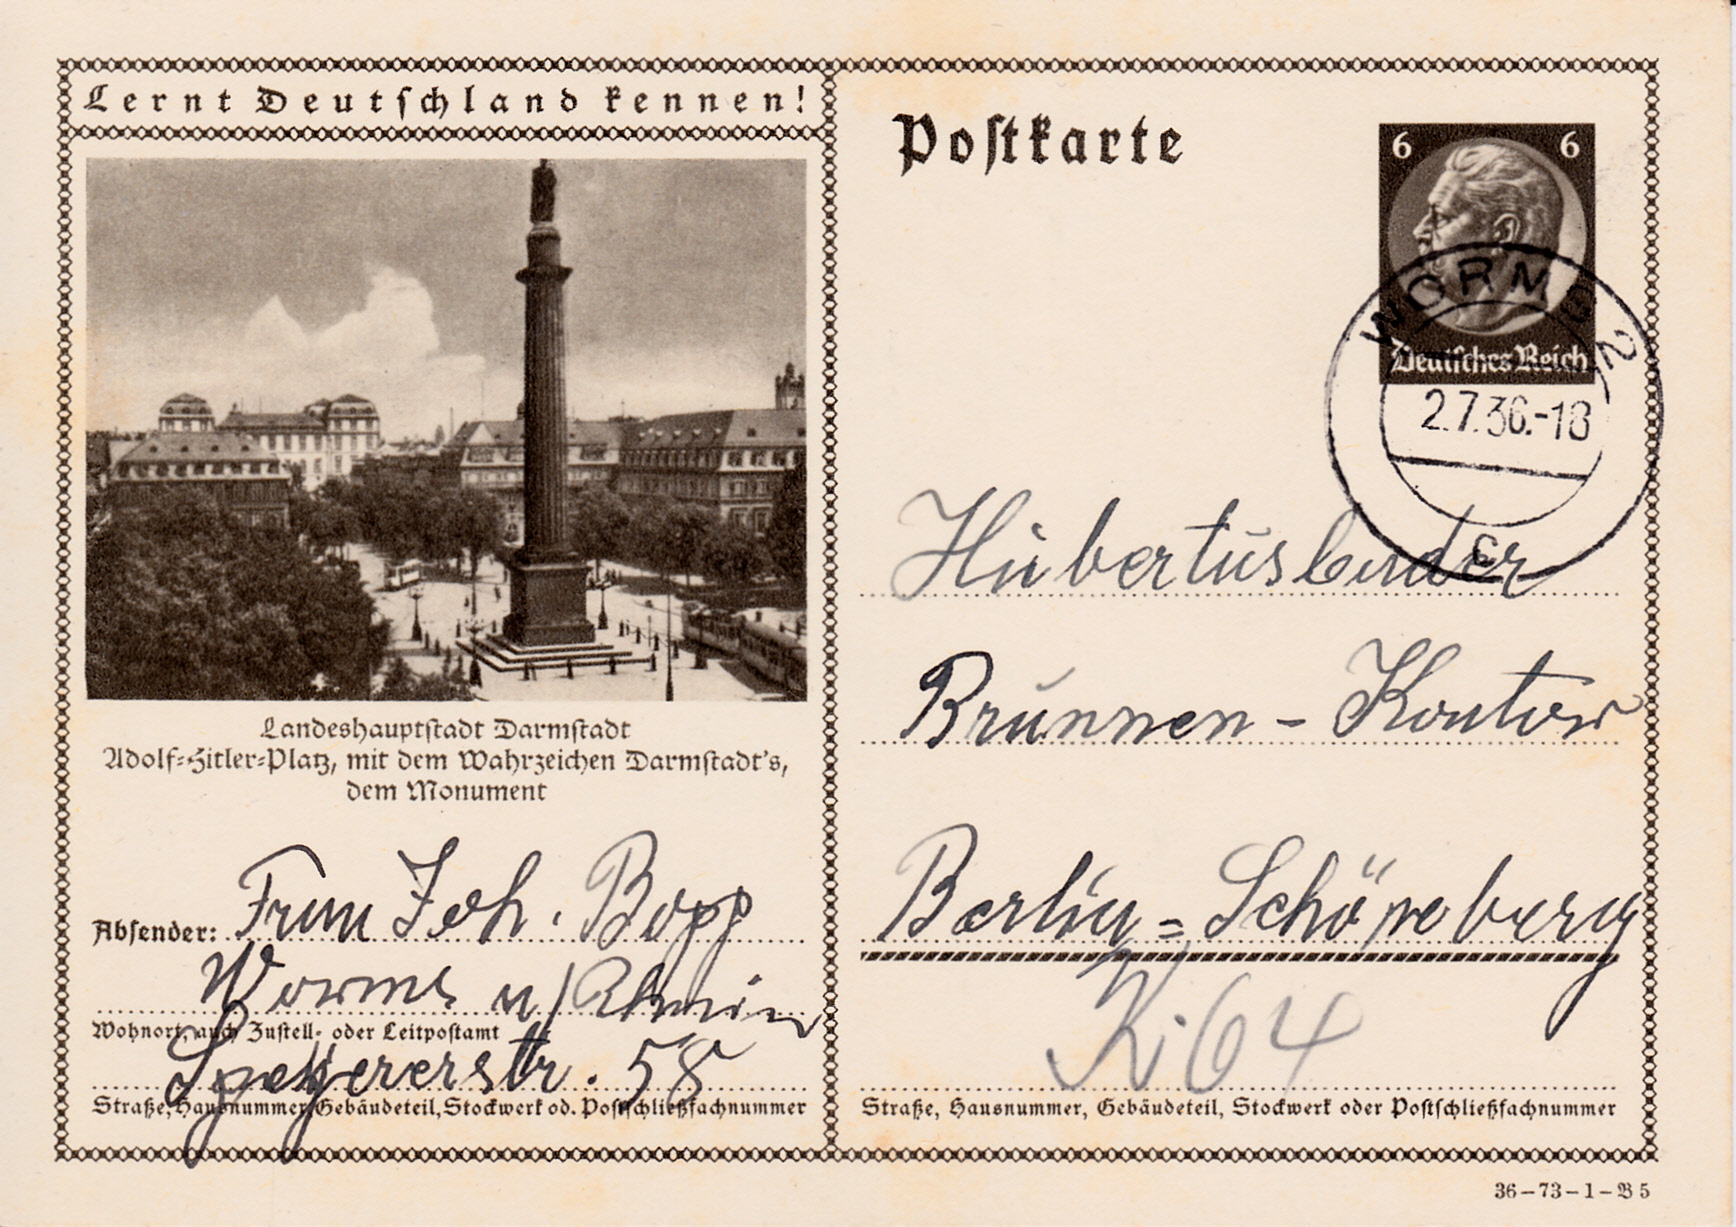 Lernt Deutschland kennen!
Landeshauptstadt Darmstadt
Adolf-Hitler-Platz, mit dem Wahrzeichen Darmstadt's,
dem Monument
Absender: Frau Joh. Bopp
Worms a/Rhein
Wohnort, auch Zustell- oder Leitpostamt
Speyererstr. 58
Straße, Hausnummer, Gebäudeteil, Stockwerk od. Postschließfachnummer
Postkarte
6 6
Deutsches Reich
WORMS 2
2.7.36.-18
c
Hubertusbader
Brunnen-Kontor
Berlin=Schöneberg
K. 64
Straße, Hausnummer, Gebäudeteil, Stockwerk oder Postschließfachnummer
36-73-1-B 5